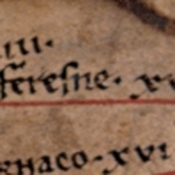 iiii.
fresne. xv
gnaco. xvi